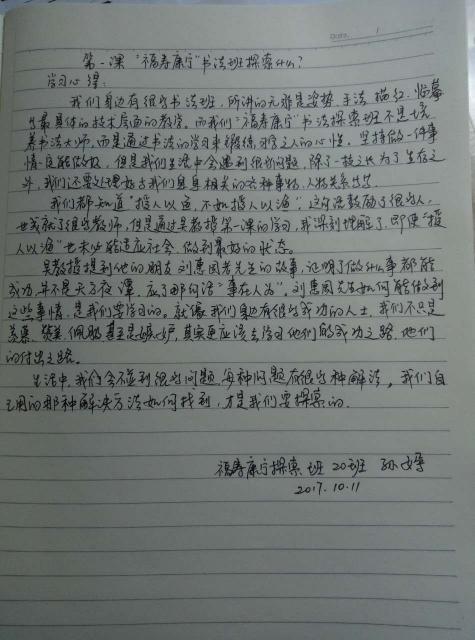 Date. 1
第一课 "福寿康宁"书法班探索什么?
学习心得:
我们身边有很多书法班,所讲的无非是姿势、手法、描红、临摹
等最具体的技术层面的教学。而我们"福寿康宁"书法探索班不是培
养书法大师,而是通过书法的学习来锻练习字之人的心性。坚持做一件事
情,总能做好,但是我们生活中会遇到很多问题,除了一技之长为了生存之
外,我们还要处理好与我们息息相关的各种事物,人物关系
我们都知道"授人以鱼,不如授人以渔",这句话鼓励了很多人,
也成就了很多教师,但是通过吴教授第一课的学习,我深刻理解了,即使"授
人以渔"也未必能适应社会,做到最好的状态。
吴教授提到他的朋友刘惠因老先生的故事,证明了做什么事都能
成功,并不是天方夜谭,应了那句话"事在人为"。刘惠因先生如何能做到
这些事情,是我们要学习的。就像我们身边有很多成功的人士,我们不只是
羡慕、赞美、佩服甚至是嫉妒,其实更应该去学习他们的成功之路,他们
的付出之路。
生活中,我们会碰到很多问题,每种问题有很多种解法,我们自
己用的那种解决方法如何找到,才是我们要探索的。
福寿康宁探索班 20班 孙婷
2017.10.11